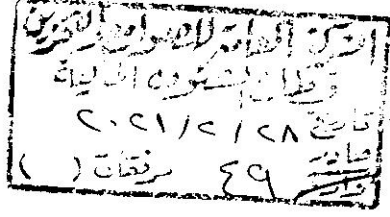 الشركة العامة للصوامع والتخزين
قطاع الشئون المالية
تاريخ ٢٠٢١/٢/٢٨
صادر
وارد ٤٩ مرفقات ( )